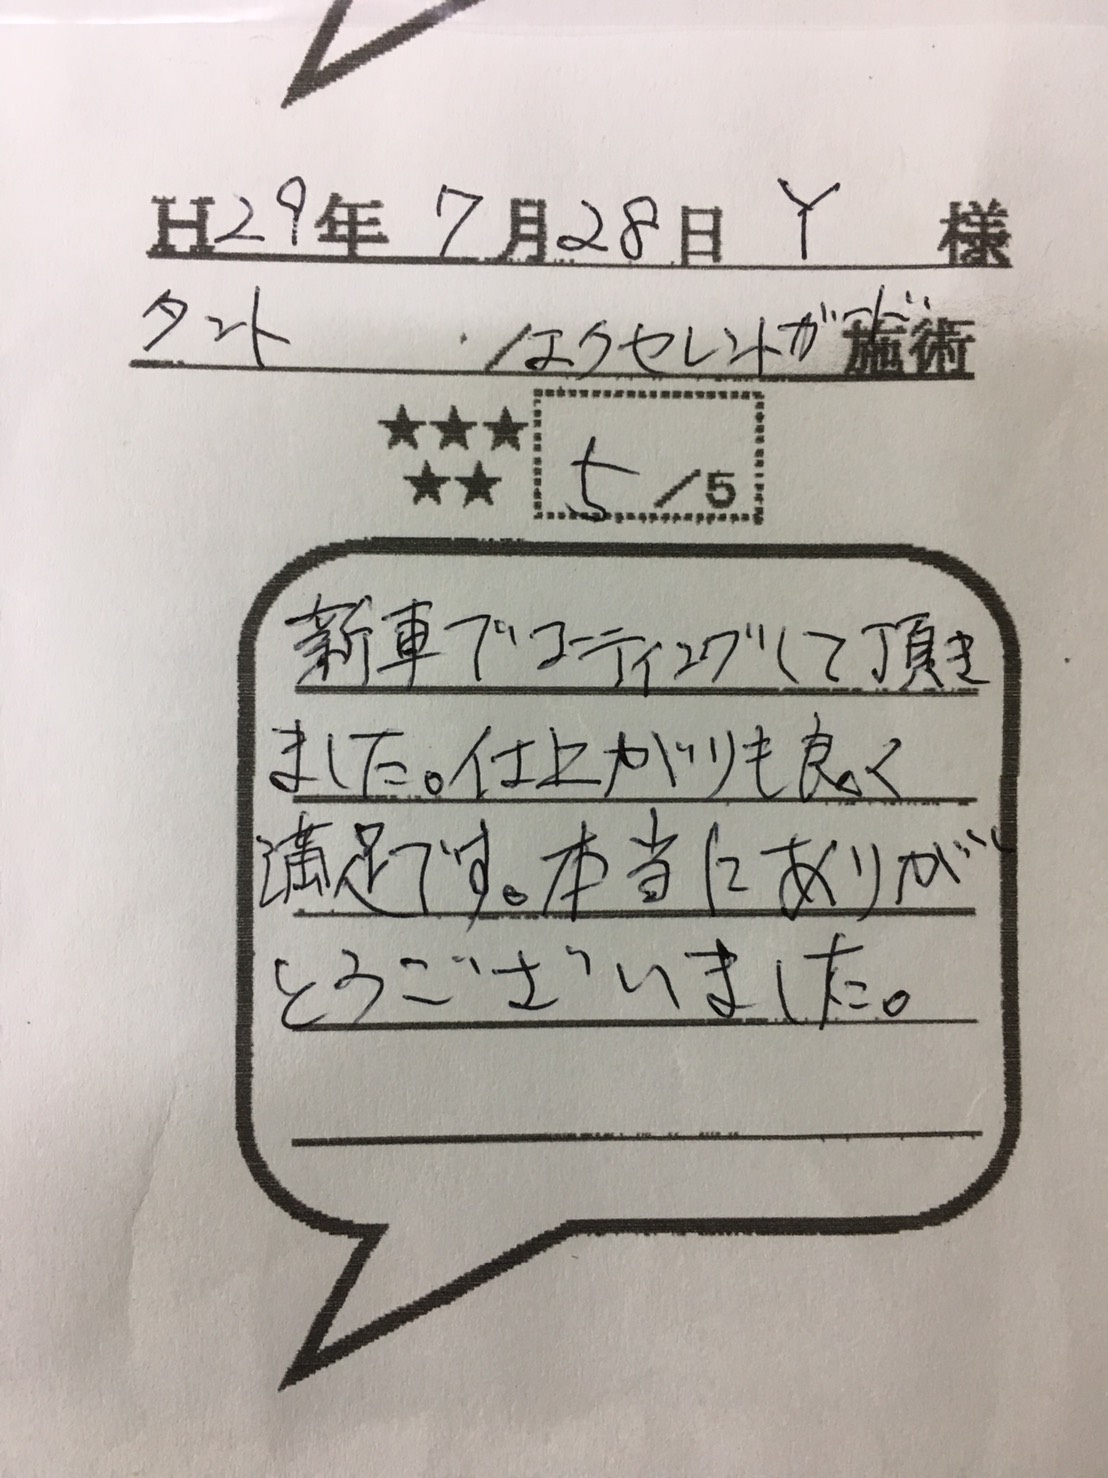 H29年 7月28日 Y 様
タント /エクセレントガード 施術
★★★
★★ 5/5
新車でコーティングして頂き
ました。仕上がりも良く
満足です。本当にありが
とうございました。